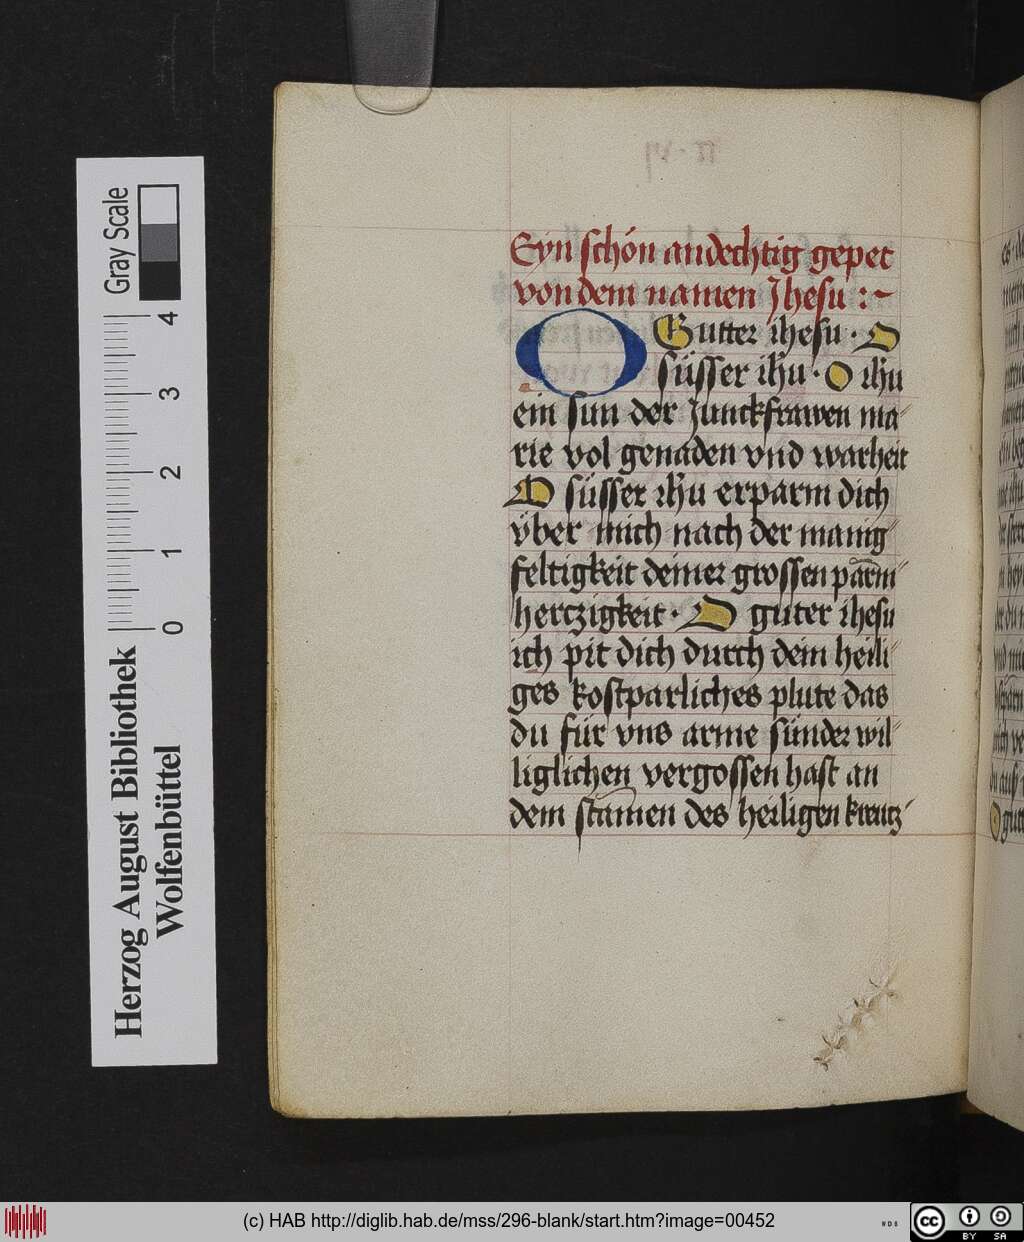 Eyn schön andechtig gepet
von dem namen Jhesu :~
O Gutter ihesu · O
süsser ih̄u · O ih̄u
ein sun der Junckfrawen ma-
rie vol genaden vnd warheit
O süsser ih̄u erparm dich
vber mich nach der manig-
feltigkeit deiner grossen parm-
herczigkeit · O guter ihesu
ich pit dich durch dein heili-
ges kostparliches plute das
du für vns arme sünder wil-
liglichen vergossen hast an
dem stāmen des heiligen kreutz-
Gray Scale
0 1 2 3 4
Herzog August Bibliothek
Wolfenbüttel
(c) HAB http://diglib.hab.de/mss/296-blank/start.htm?image=00452
WDB
cc BY SA